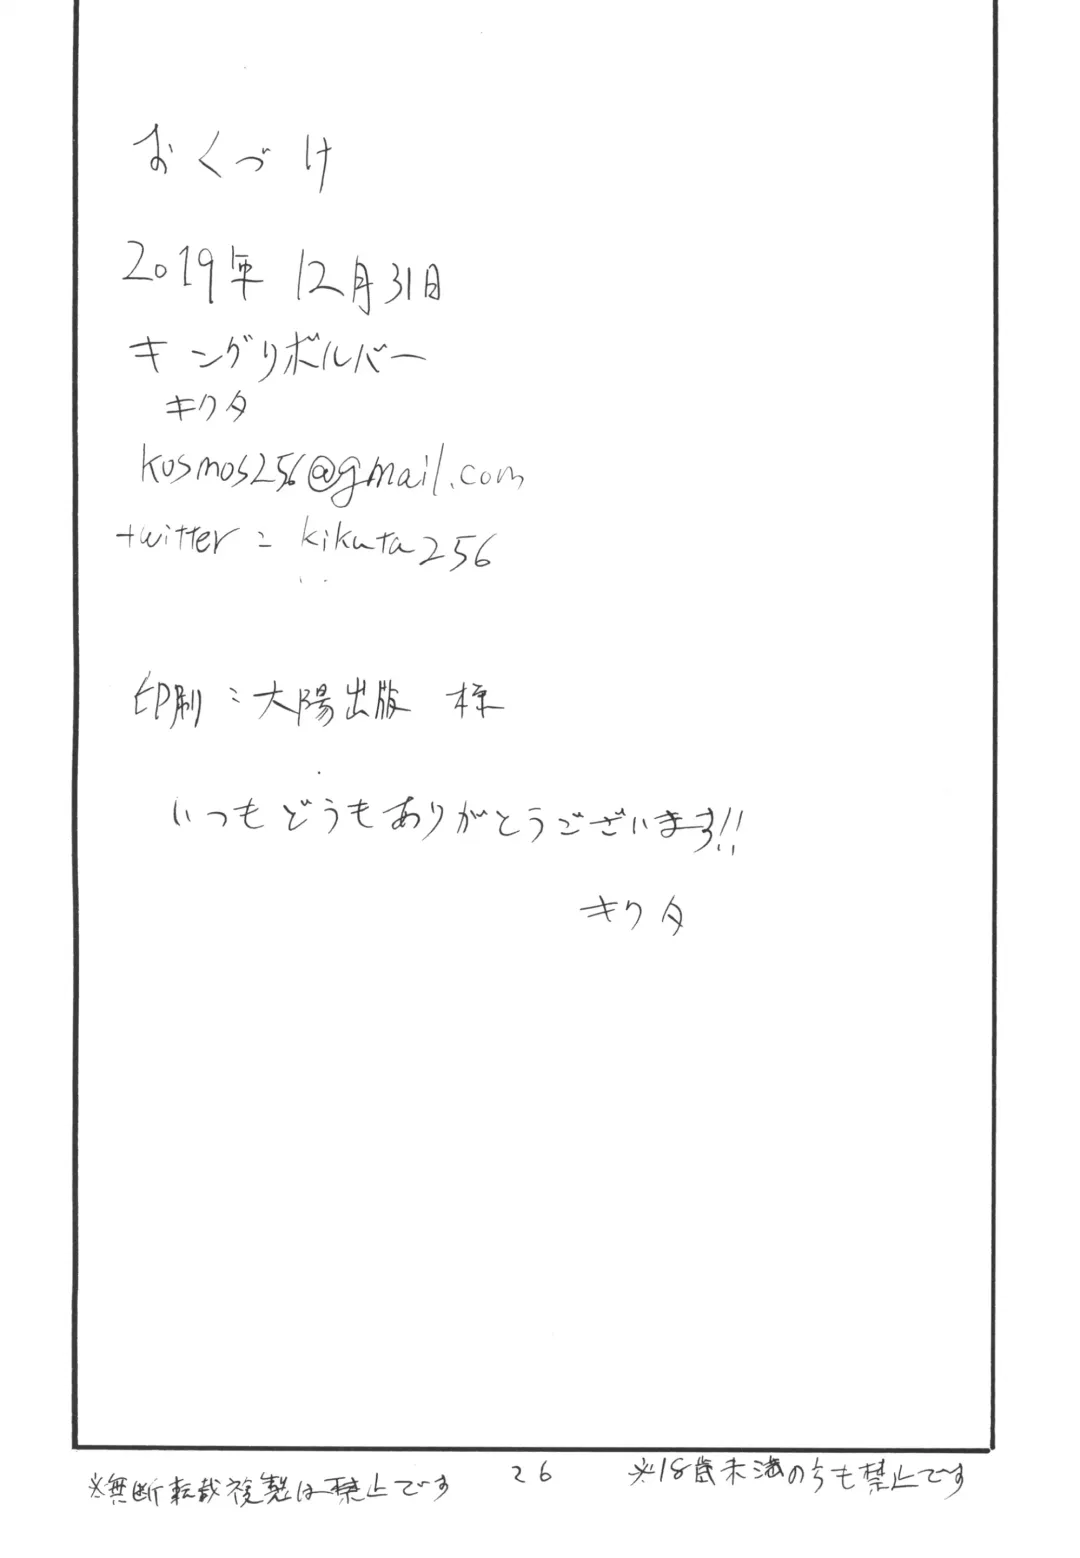 おくづけ
2019年 12月31日
キングリボルバー
キクタ
kosmos256@gmail.com
twitter : kikuta256
印刷:大陽出版 様
いつもどうもありがとうございます!!
キクタ
※無断転載複製は禁止です
26
※18歳未満の方も禁止です